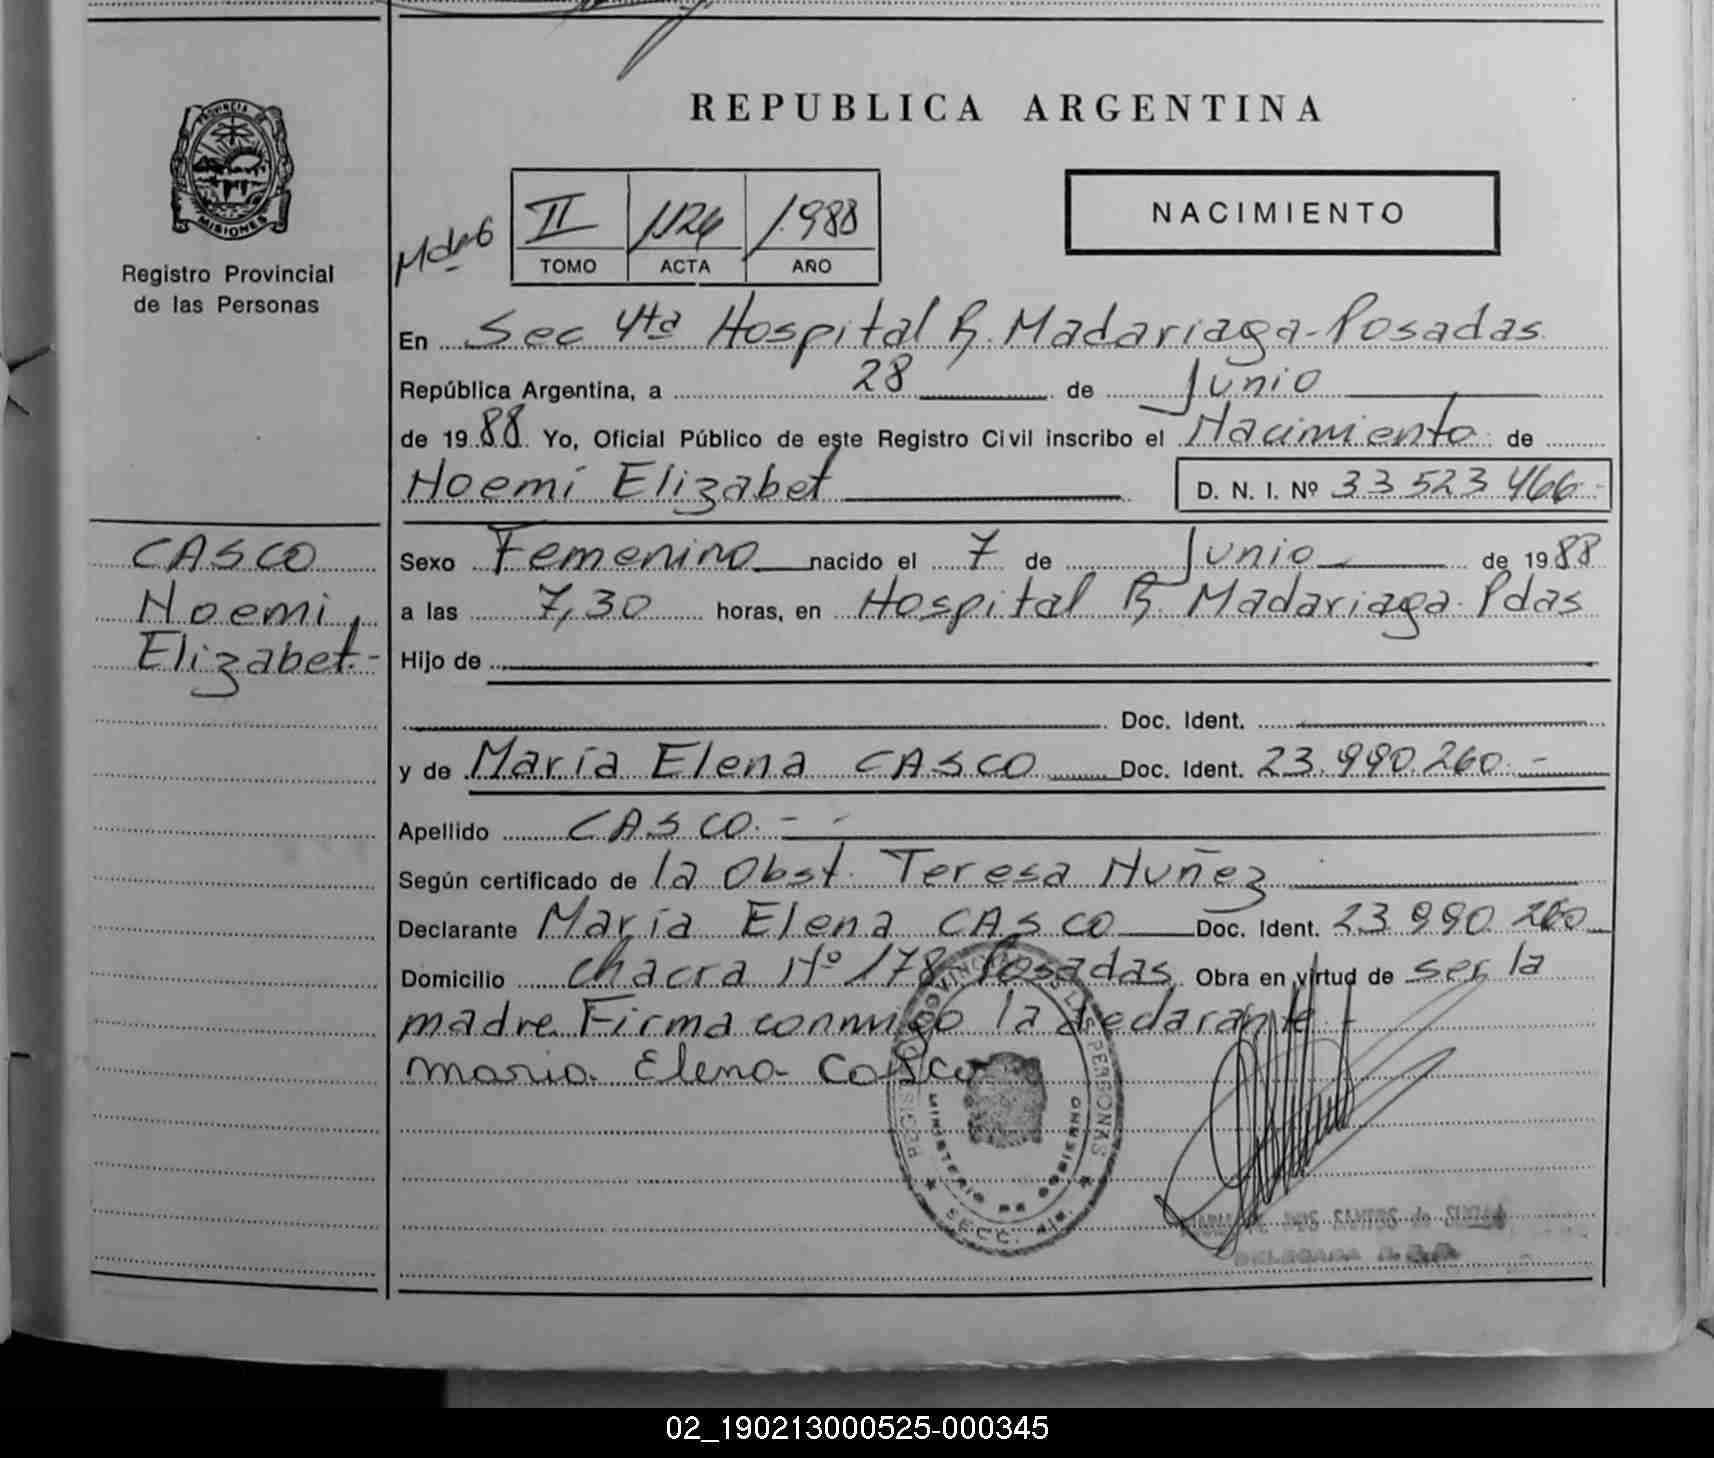 REPUBLICA ARGENTINA
PROVINCIA DE
MISIONES
Registro Provincial
de las Personas
II 1126 1.988
TOMO ACTA AÑO
NACIMIENTO
En Sec 4ta Hospital R. Madariaga - Posadas
República Argentina, a 28 de Junio
de 1988 Yo, Oficial Público de este Registro Civil inscribo el Nacimiento de
Noemí Elizabet D. N. I. Nº 33523466-
CASCO
Noemi
Elizabet.-
Sexo Femenino nacido el 7 de Junio de 1988
a las 7,30 horas, en Hospital R. Madariaga. Pdas
Hijo de
Doc. Ident.
y de María Elena CASCO Doc. Ident. 23.990.260.-
Apellido CASCO.--
Según certificado de la Obst. Teresa Nuñez
Declarante María Elena CASCO Doc. Ident. 23 990 260
Domicilio chacra Nº 178 Posadas Obra en virtud de ser la
madre. Firma conmigo la declarante -
maria Elena Casco
REGISTRO PROVINCIAL DE LAS PERSONAS
MINISTERIO DE GOBIERNO
SECC. 4ta.
02_190213000525-000345